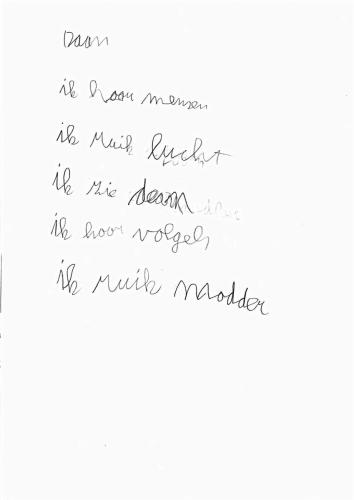 Daan
ik hoor mensen
ik ruik lucht
ik zie daan
ik hoor volgels
ik ruik modder